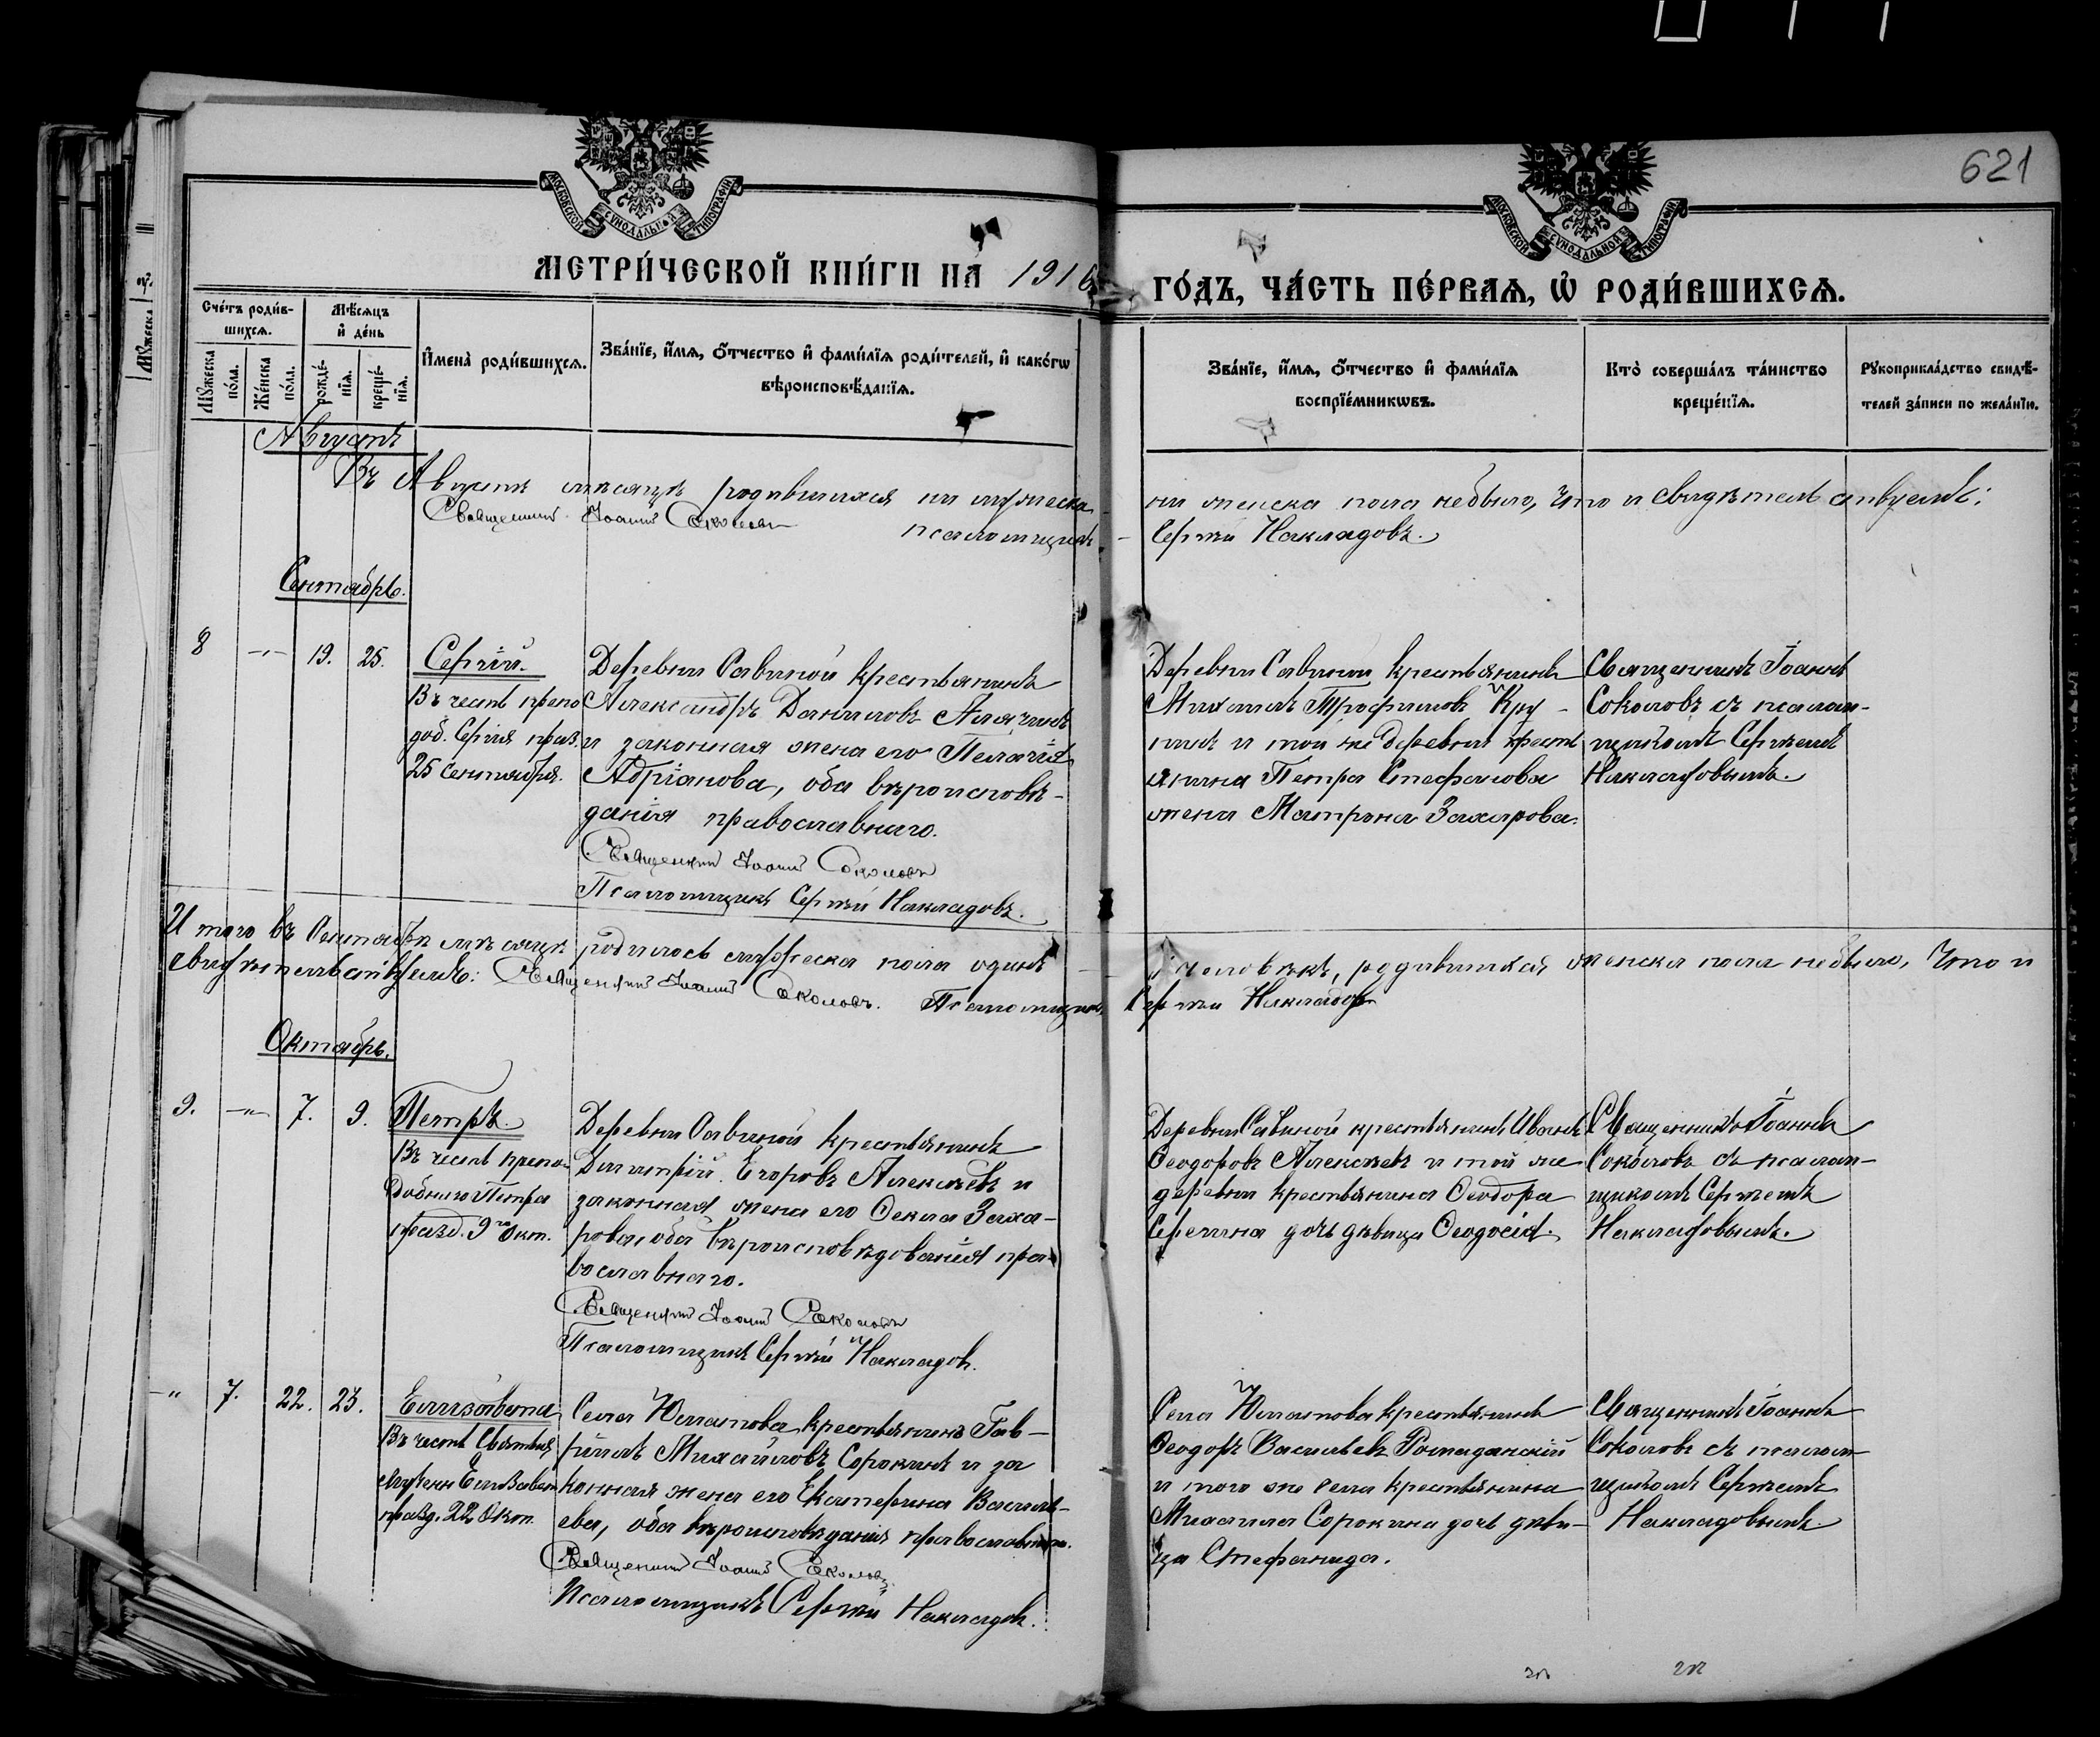 621
МОСКОВСКОЙ СѴНОДАЛЬНОЙ ТИПОГРАФІИ
МОСКОВСКОЙ СѴНОДАЛЬНОЙ ТИПОГРАФІИ
МЕТРИ́ЧЕСКОЙ КНИ́ГИ НА 1916
ГО́ДЪ, ЧА́СТЬ ПЕ́РВАЯ, Ѡ҆ РОДИ́ВШИХСЯ.
Сче́тъ роди́в-
шихся.
Мѣ́сяцъ
и҆ де́нь
Мꙋ́жеска
по́ла.
Же́нска
по́ла.
рожде́-
нїя.
креще́-
нїя.
И҆мена̀ роди́вшихся.
Зва́нїе, и҆́мя, ѻ҆́тчество и҆ фами́лїя роди́телей, и҆ како́гѡ
вѣроисповѣ́данїя.
Зва́нїе, и҆́мя, ѻ҆́тчество и҆ фами́лїя
воспрїе́мникѡвъ.
Кто̀ соверша́лъ та́инство
креще́нїя.
Рꙋкоприкла́дство свидѣ́-
телей за́писи по жела́нїю.
Августъ
Въ Августѣ мѣсяцѣ родившихся ни мужеска
ни женска пола небыло, что и свидѣтельствуемъ:
Священникъ Іоаннъ Соколовъ
псаломщикъ
Сергѣй Накладовъ.
Сентябрь.
8 -"- 19. 25. Сергій.
Въ честь препо
дод. Сергія праз.
25 Сентября.
Деревни Савиной крестьянинъ
Александръ Даниловъ Алачинъ
и законная жена его Пелагія
Адріанова, оба вѣроисповѣ-
данія православнаго.
Священникъ Іоаннъ Соколовъ
Псаломщикъ Сергѣй Накладовъ.
Деревни Савиной крестьянинъ
Михаилъ Трофимовъ Кру-
нинъ и той же деревни крест
янина Петра Стефанова
жена Матрона Захарова.
Священникъ Іоаннъ
Соколовъ съ псалом-
щикомъ Сергѣемъ
Накладовымъ.
И того въ Сентябрѣ мѣсяцѣ родилось мужеска пола одинъ
человѣкъ, родившихся женска пола небыло, что и
свидѣтельствуемъ: Священникъ Іоаннъ Соколовъ. Псаломщикъ
Сергѣй Накладовъ
Октябрь.
9. -"- 7. 9. Петръ.
Въ честь препо-
добнаго Петра
празд. 9го Окт.
Деревни Савиной крестьянинъ
Димитрій Егоровъ Алексѣевъ и
законная жена его Ѳекла Заха-
рова, оба вѣроисповѣдованія пра-
вославнаго.
Священникъ Іоаннъ Соколовъ
Псаломщикъ Сергѣй Накладовъ.
Деревни Савиной крестьянинъ Иванъ
Ѳеодоровъ Алексѣевъ и той же
деревни крестьянина Ѳеодора
Серегина дочь дѣвица Ѳеодосія.
Священникъ Іоаннъ
Соколовъ съ псалом-
щикомъ Сергѣемъ
Накладовымъ.
-" 7. 22. 23. Елизавета
Въ честь Святыя
мучен Елизаветы
празд. 22 Окт.
Села Юматова крестьянинъ Гав-
ріилъ Михайловъ Сорокинъ и за
конная жена его Екатерина Василь-
ева, оба вѣроисповѣданія православнаго.
Священникъ Іоаннъ Соколовъ
Псаломщикъ Сергѣй Накладовъ.
Села Юматова крестьянинъ
Ѳеодоръ Васильевъ Ромадинскій
и того же села крестьянина
Михаила Сорокина дочь дѣви-
ца Стефанида.
Священникъ Іоаннъ
Соколовъ съ псалом-
щикомъ Сергѣемъ
Накладовымъ.